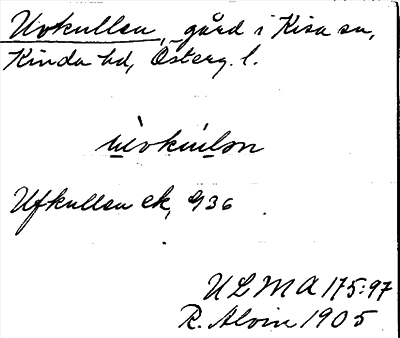 Uvkullen, gård i Kisa sn,
Kinda hd, Österg. l.
Ufkullen ek, 936
ULMA 175:97
R. Alvin 1905